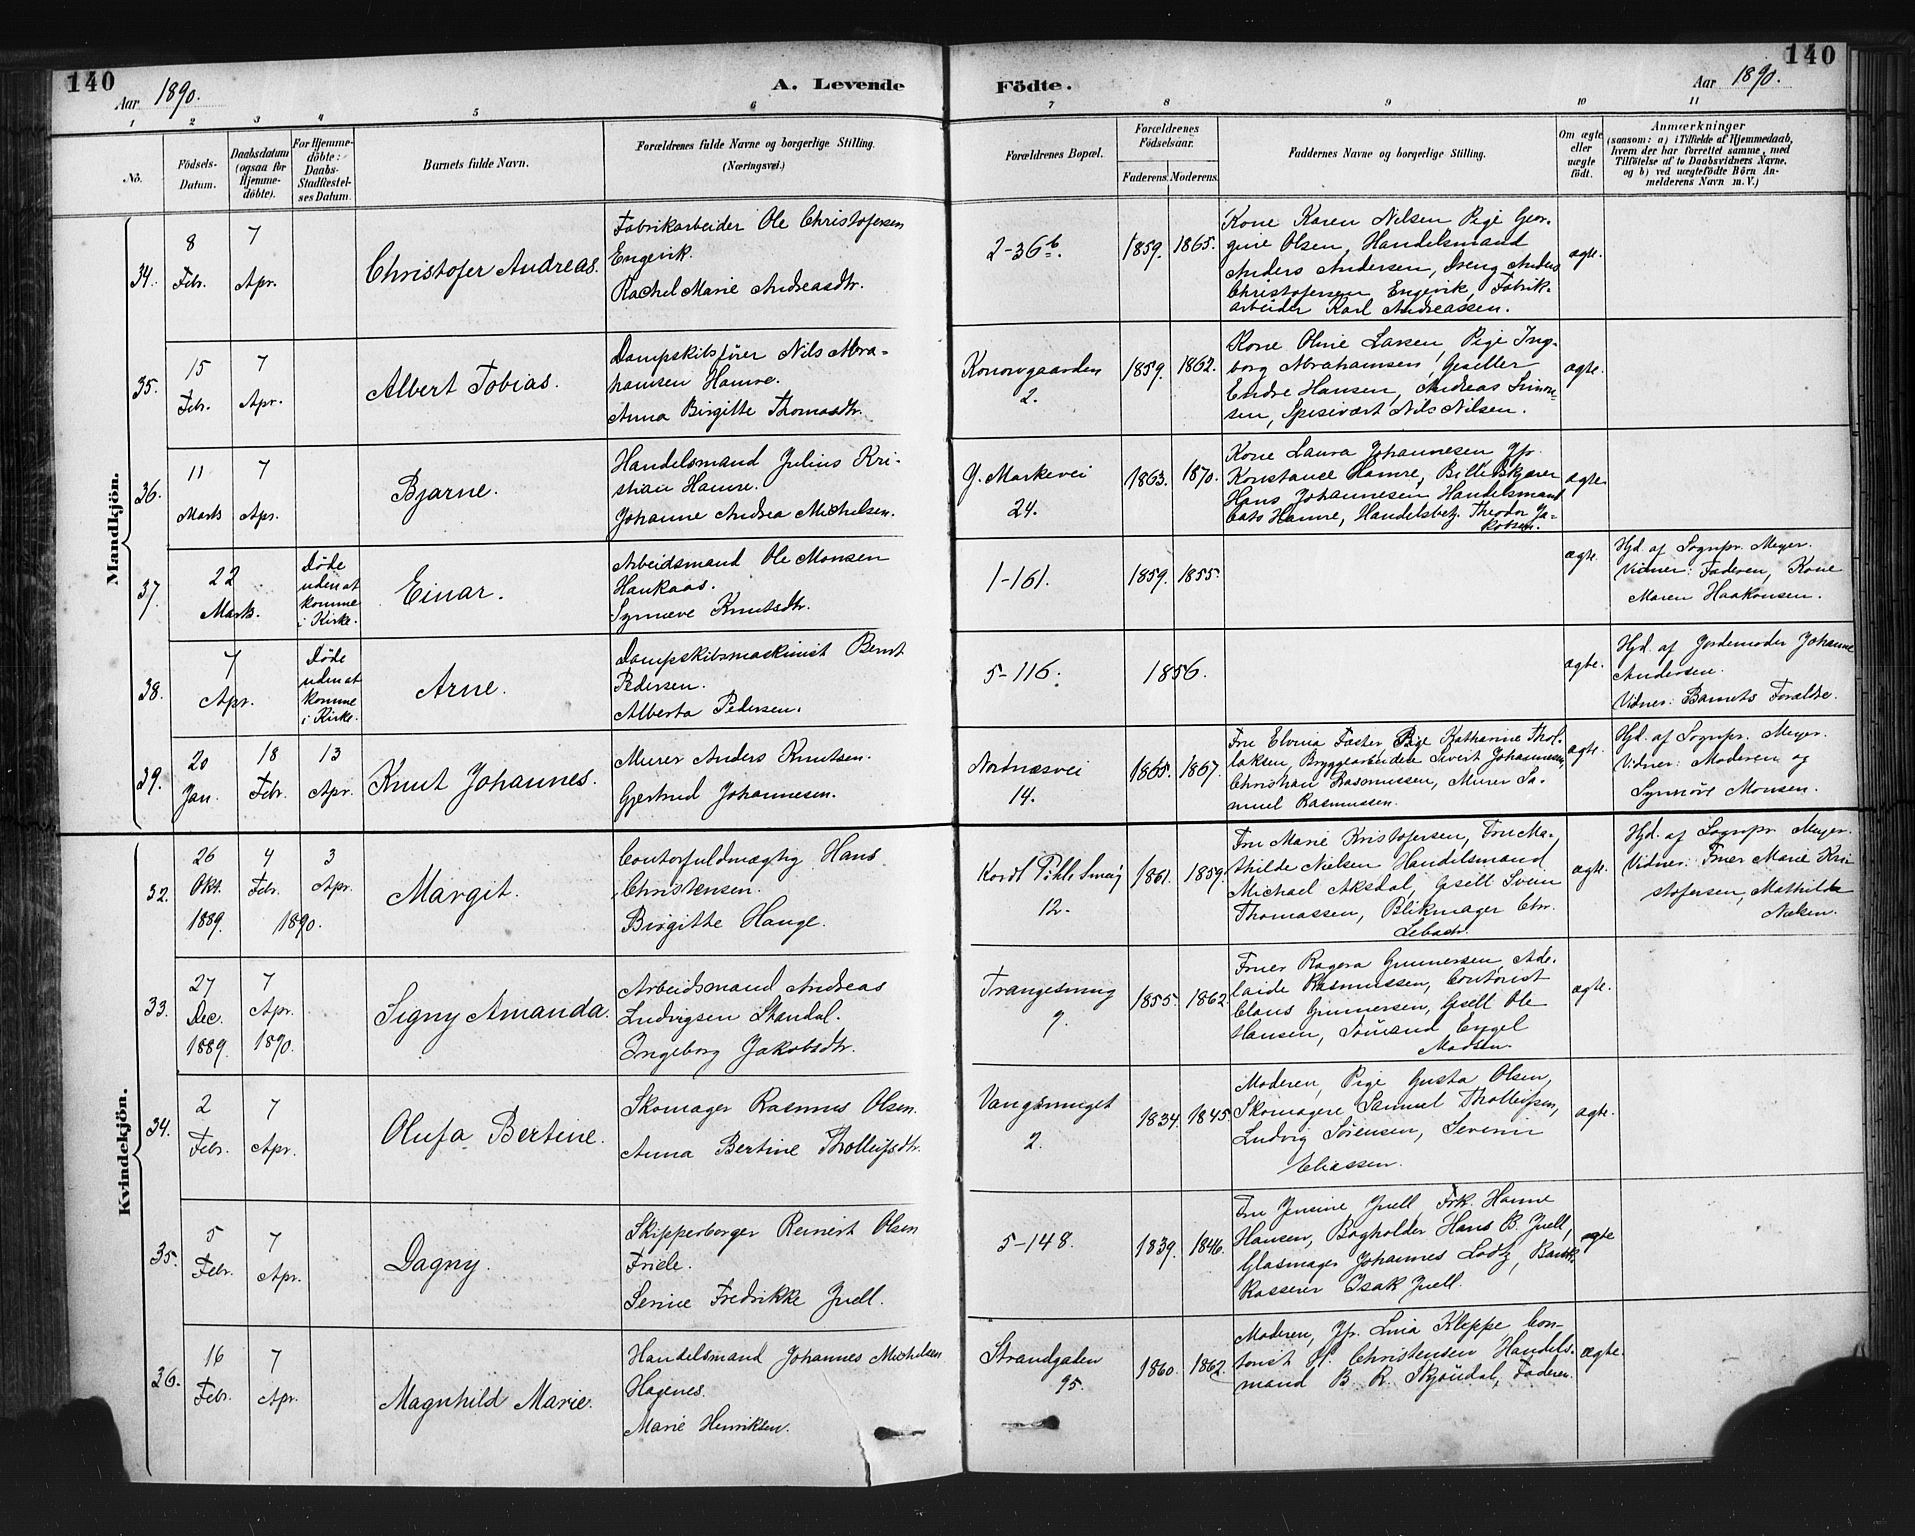 140
Aar 1890.
A. Levende Födte.
Aar 1890.
140
1 2 3 4 5 6 7 8 9 10 11
No.
Födsels-Datum.
Daabsdatum (ogsaa for Hjemmedöbte).
For Hjemmedöbte: Daabs-Stadfæstelses Datum.
Barnets fulde Navn.
Forældrenes fulde Navne og borgerlige Stilling. (Næringsvei.)
Forældrenes Bopæl.
Forældrenes Födselsaar.
Faderens. Moderens.
Faddernes Navne og borgerlige Stilling.
Om ægte eller uægte födt.
Anmærkninger
(saasom: a) i Tilfælde af Hjemmedaab, hvem der har forrettet samme, med Tilföielse af to Daabsvidners Navne, og b) ved uægtefödte Börn Anmelderens Navn m. V.)
Mandkjön.
34.
8 Febr.
7 Apr.
Christofer Andreas.
Fabrikarbeider Ole Christofersen
Engevik.
Rachel Marie Andreasdtr.
2-36b.
1859. 1865.
Kone Karen Nilsen Pige Geor-
gine Olsen, Handelsmand
Anders Andersen, Dreng Anders
Christofersen Engevik, Fabrik-
arbeider Karl Andreassen.
ægte.
35.
15 Febr.
7 Apr.
Albert Tobias.
Dampskibsfører Nils Abra-
hamsen Hamre.
Anna Birgitte Thomasdtr.
Konowgaarden
2.
1859. 1862.
Kone Oline Larsen Pige Ing-
borg Abrahamsen, Geseller
Endre Hansen, Andreas Simon-
sen, Spisevært Nils Nilsen.
ægte.
36.
11 Marts
7 Apr.
Bjarne.
Handelsmand Julius Kri-
stian Hamre.
Johanne Andrea Michelsen.
Y. Markevei
24.
1863. 1870.
Kone Laura Johannesen Jfr.
Konstance Hamre, Billedskjærer
Hans Johannesen Handelsmand
Hamre, Handelsbetj. Theodor Ja-
kobsen.
ægte
37.
22 Marts.
Døde
uden at
komme
i Kirke.
Einar.
Arbeidsmand Ole Monsen
Haukaas.
Synneve Knutsdtr.
1-161.
1859. 1855.
ægte.
Hjd. af Sognpr. Meyer.
Vidner: Faderen, Kone
Maren Haakonsen.
38.
7 Apr.
Døde
uden at
komme
i Kirke.
Arne.
Dampskibsmaskinist Bernt
Pedersen.
Alberta Pedersen.
5-116.
1856.
ægte.
Hjd. af Jordemoder Johanne
Andersen.
Vidner: Barnets Forældre.
39.
20 Jan.
18 Febr.
13 Apr.
Knut Johannes.
Murer Anders Knutsen.
Gjertrud Johannesen.
Nordnæsvei
14.
1865. 1867.
Fru Elvina Faster, Pige Katharine Thol-
laksen, Bryggearbeidere Sivert Johannesen,
Christian Rasmussen, Murer Sa-
muel Rasmussen.
ægte.
Hjd. af Sognpr. Meyer.
Vidner: Moderen og
Synnøve Monsen.
Kvindekjön.
32.
26 Okt. 1889.
4 Febr.
3 Apr.
1890.
Margit.
Contorfuldmægtig Hans
Christensen.
Birgitte Hauge.
Kordt Pihls Smug
12.
1861. 1859.
Fru Marie Kristofersen, Fru Ma-
thilde Nielsen Handelsmand
Michael Aksdal, Gsell Svein
Thomassen, Blikmager Chr.
Lebach.
ægte.
Hjd. af Sognpr. Meyer.
Vidner: Fruer Marie Kri-
stofersen, Mathilde
Nielsen.
33.
27 Dec. 1889.
7 Apr. 1890.
Signy Amanda.
Arbeidsmand Andreas
Ludvigsen Standal.
Ingeborg Jakobsdtr.
Trangesmug
9.
1855. 1862.
Fruer Ragna Gunnersen Ade-
laide Rasmussen, Contorist
Claus Gunnersen, Gsell Ole
Hansen, Sømand Engel
Madsen.
ægte.
34.
2 Febr.
7 Apr.
Olufa Bertine.
Skomager Rasmus Olsen.
Anna Bertine Tholleifsdtr.
Vangsmuget
2.
1834. 1845.
Moderen, Pige Gusta Olsen,
Skomagere Samuel Tholleifsen,
Ludvig Sørensen, Severin
Eliassen.
ægte.
35.
5 Febr.
7 Apr.
Dagny.
Skipperborger Reinert Olsen
Friele.
Serine Fredrikke Juell.
5-148.
1839. 1846.
Fru Jensine Juell, Frk. Hanne
Hansen, Bogholder Hans B. Juell,
Glasmager Johannes Lodtz, Bank-
kasserer Isak Juell.
ægte
36.
16 Febr.
7 Apr.
Magnhild Marie.
Handelsmand Johannes Michelsen
Hagenes.
Marie Henriksen.
Strandgaden
95.
1860. 1862.
Moderen, Jfr. Lina Kleppe Con-
torist H. Christensen Handels-
mand B. R. Skjøndal, Faderen.
ægte.